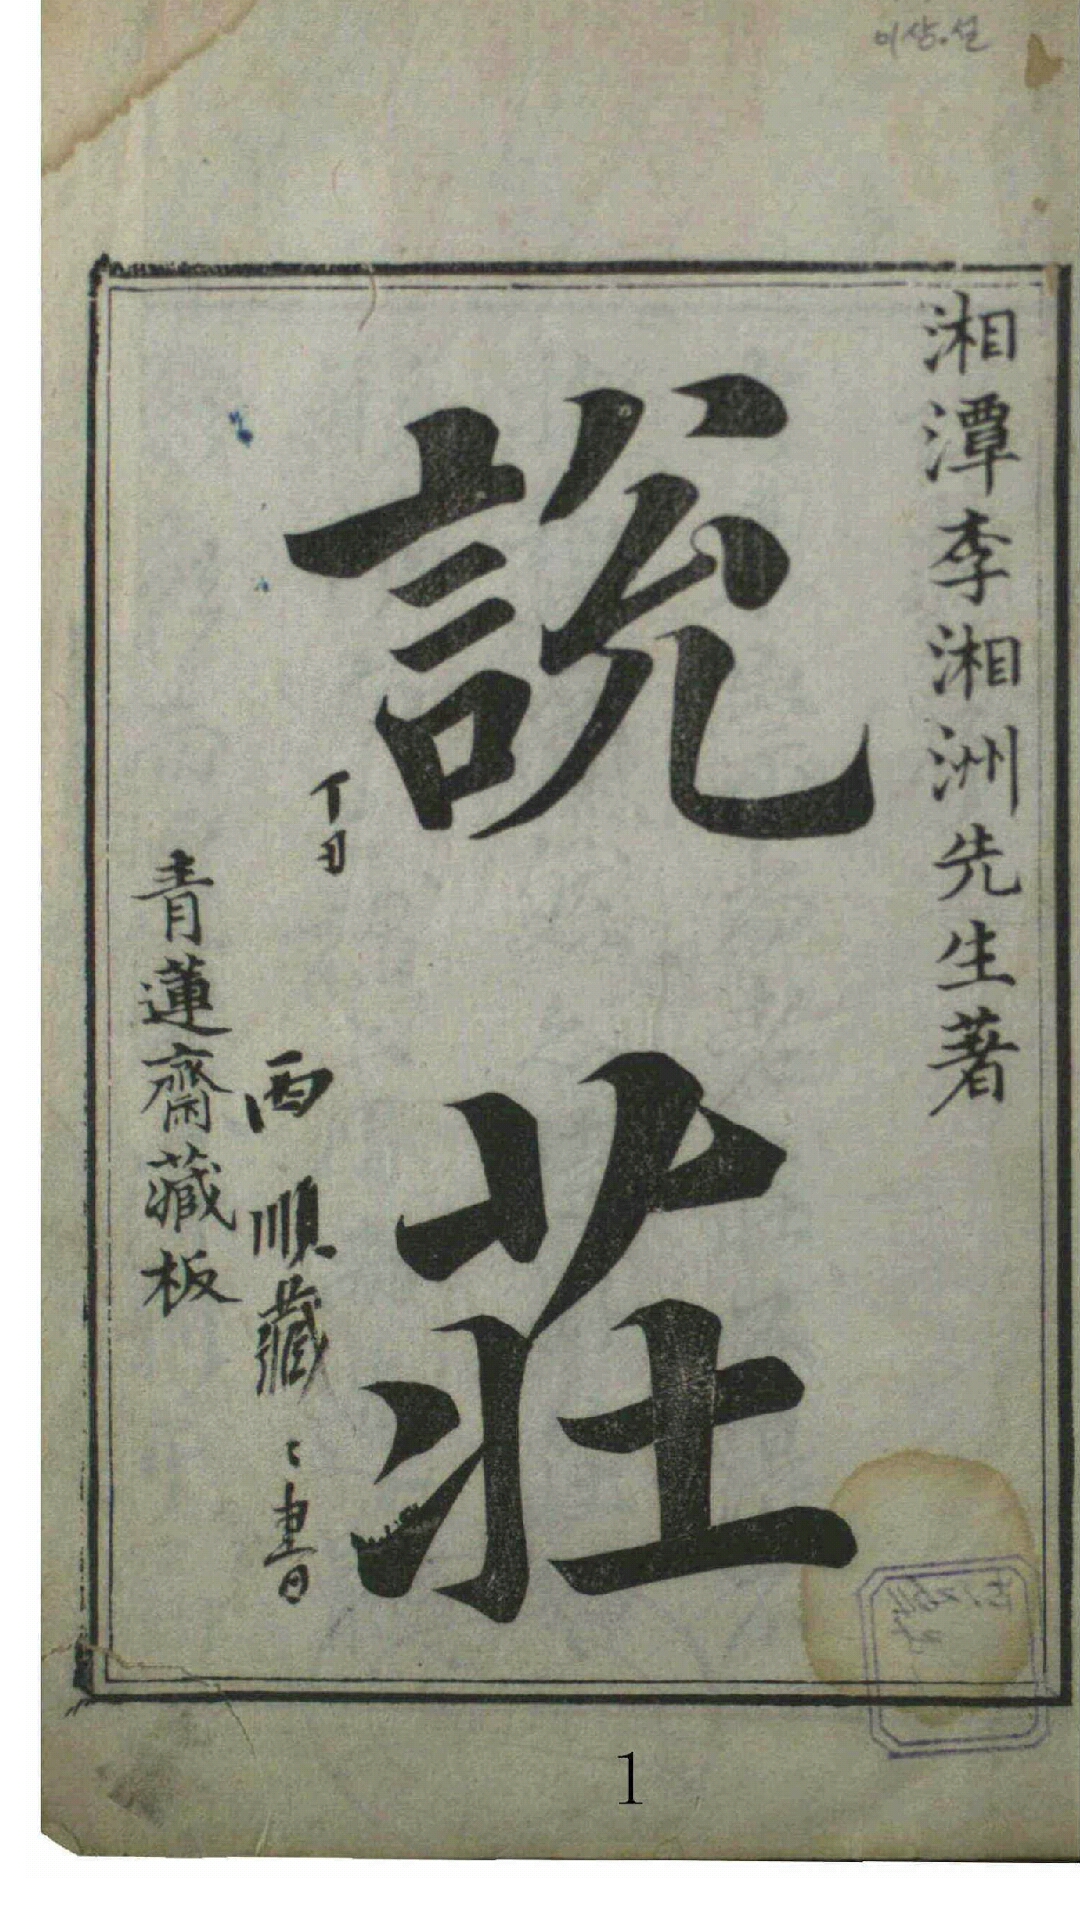 이상.설
湘潭李湘洲先生著
說莊
丁丑
西順藏
書
青蓮齋藏板
1